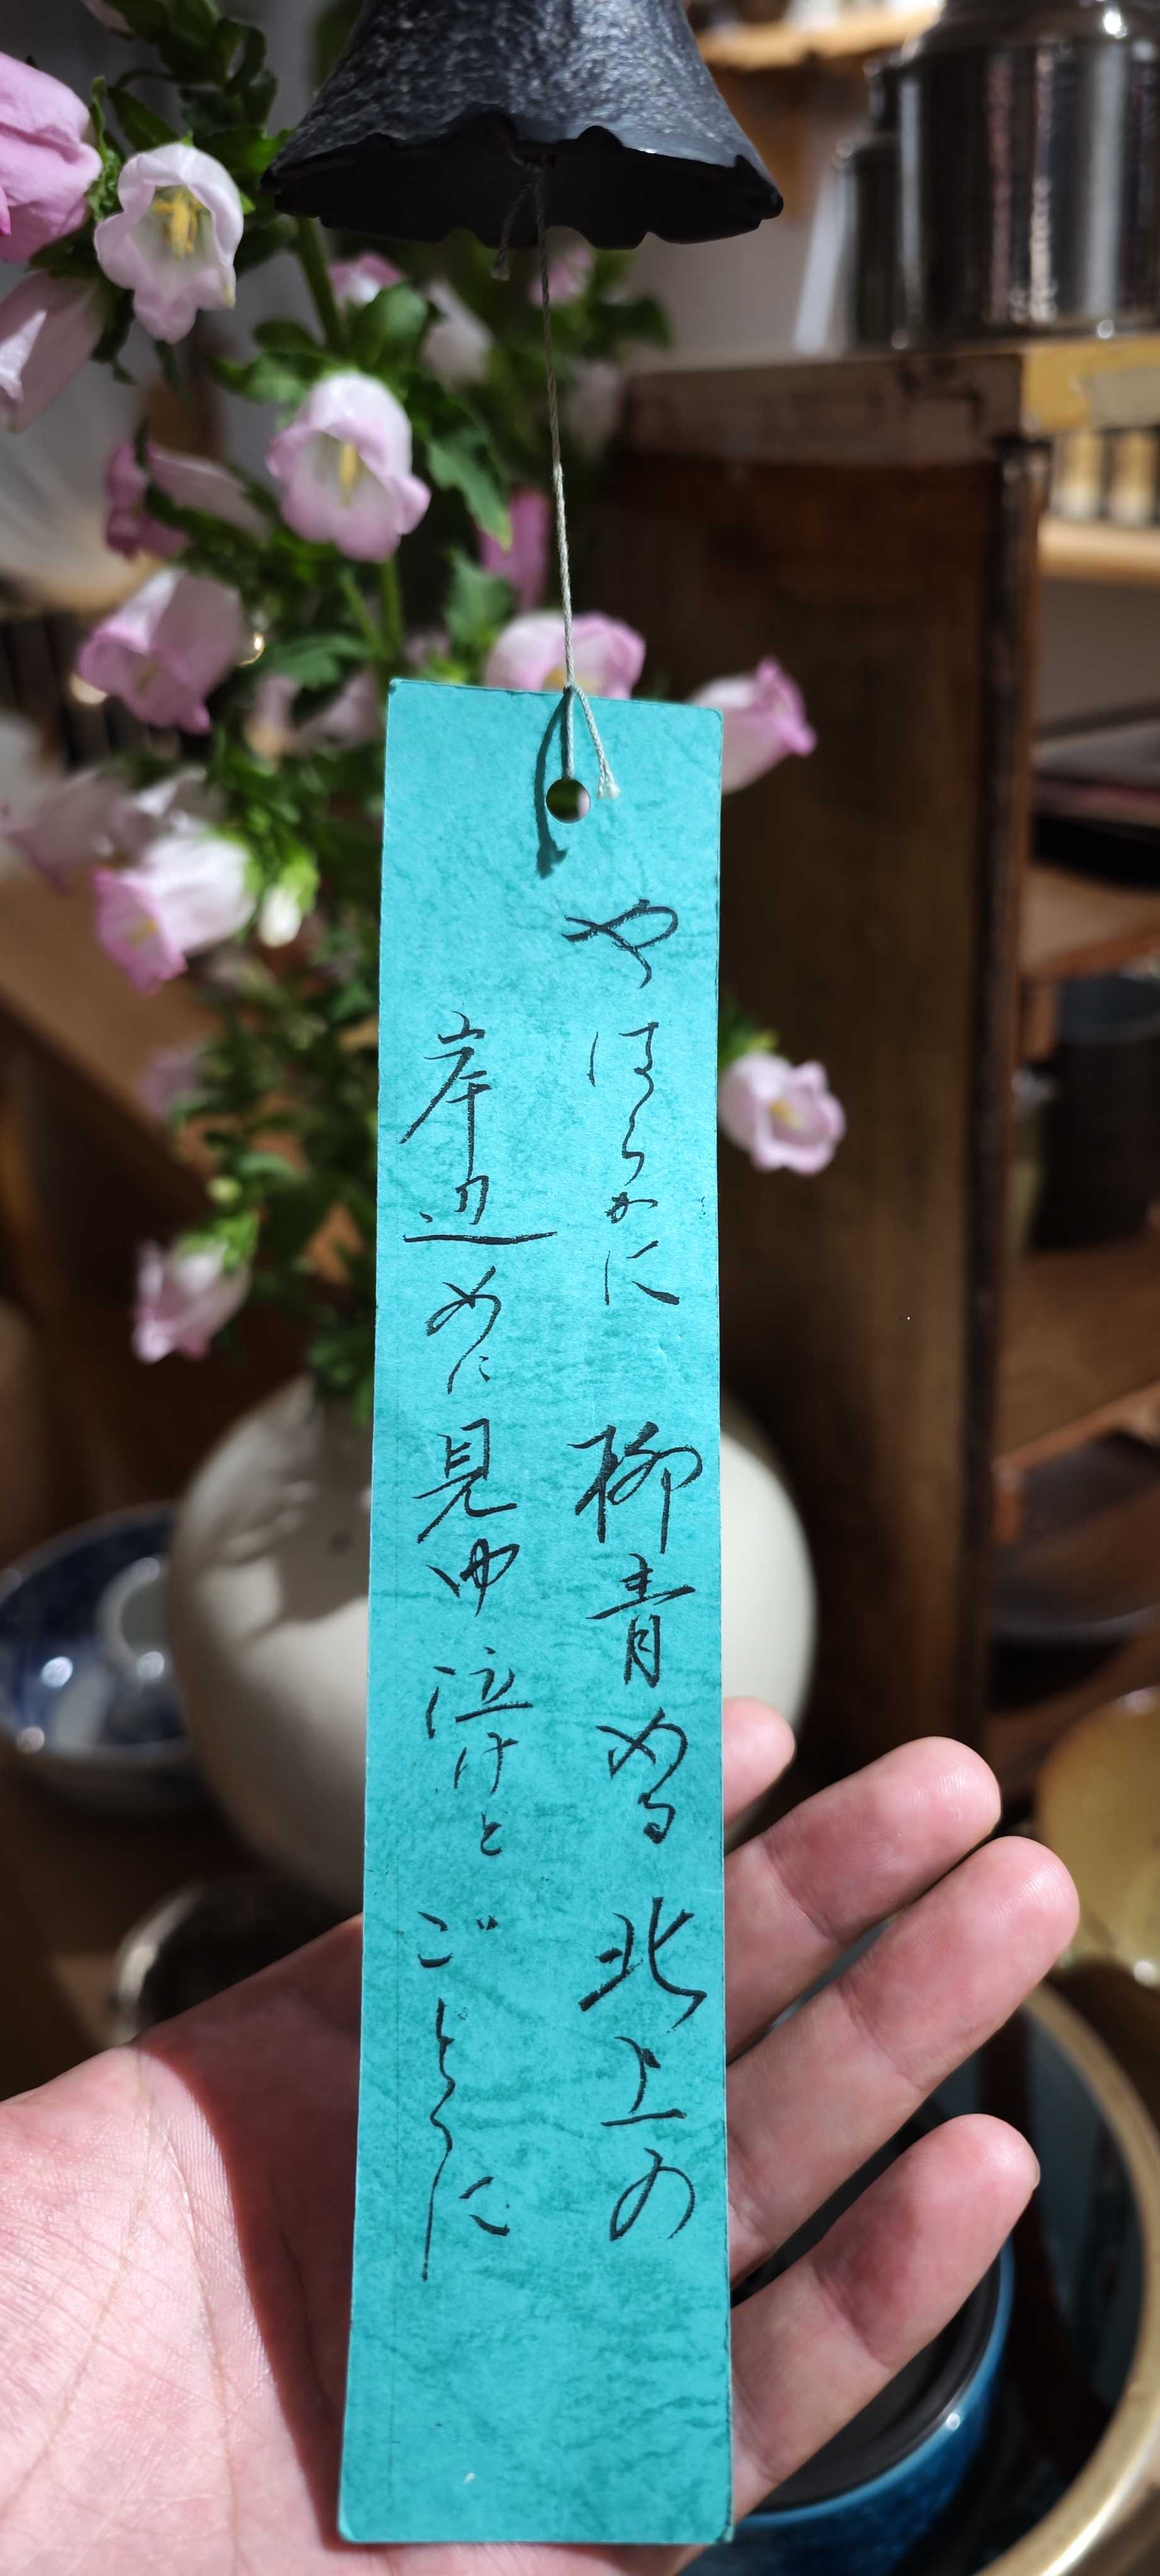 やはらかに 柳青める 北上の
岸辺めに見ゆ 泣けと ごとくに